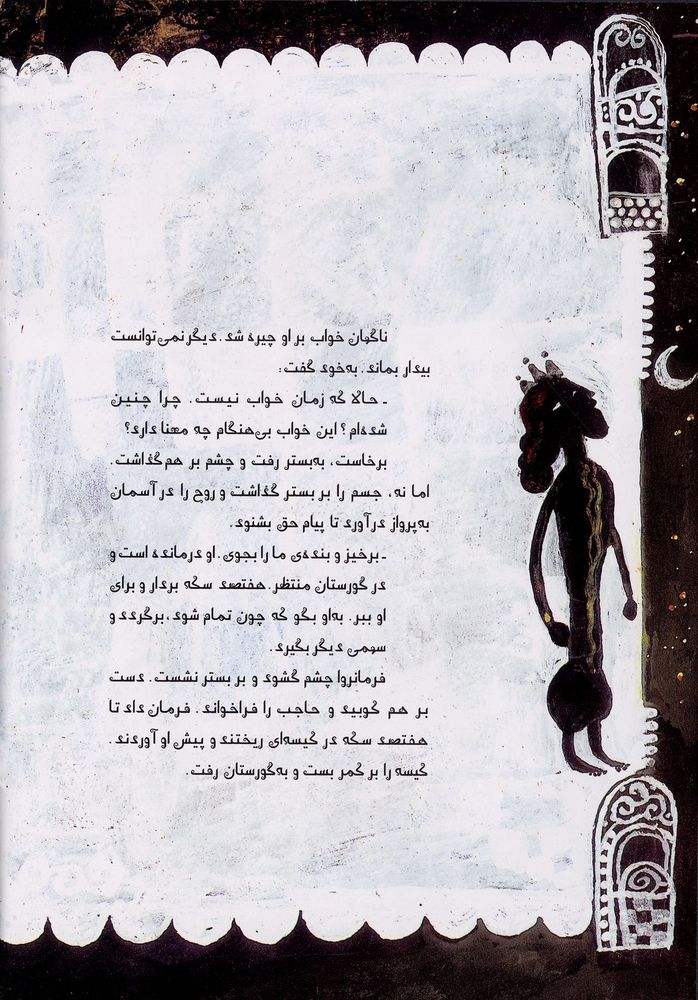 ناگهان خواب بر او چیره شد. دیگر نمی‌توانست
بیدار بماند. به‌خود گفت:
ـ حالا که زمان خواب نیست. چرا چنین
شده‌ام؟ این خواب بی‌هنگام چه معنا دارد؟
برخاست، به‌بستر رفت و چشم بر هم گذاشت.
اما نه، جسم را بر بستر گذاشت و روح را در آسمان
به‌پرواز درآورد تا پیام حق بشنود.
ـ برخیز و بنده‌ی ما را بجوی. او درمانده است و
در گورستان منتظر. هفتصد سکه بردار و برای
او ببر. به‌او بگو که چون تمام شود، برگردد و
سهمی دیگر بگیرد.
فرمانروا چشم گشود و بر بستر نشست. دست
بر هم کوبید و حاجب را فراخواند. فرمان داد تا
هفتصد سکه در کیسه‌ای ریختند و پیش او آوردند.
کیسه را بر کمر بست و به‌گورستان رفت.